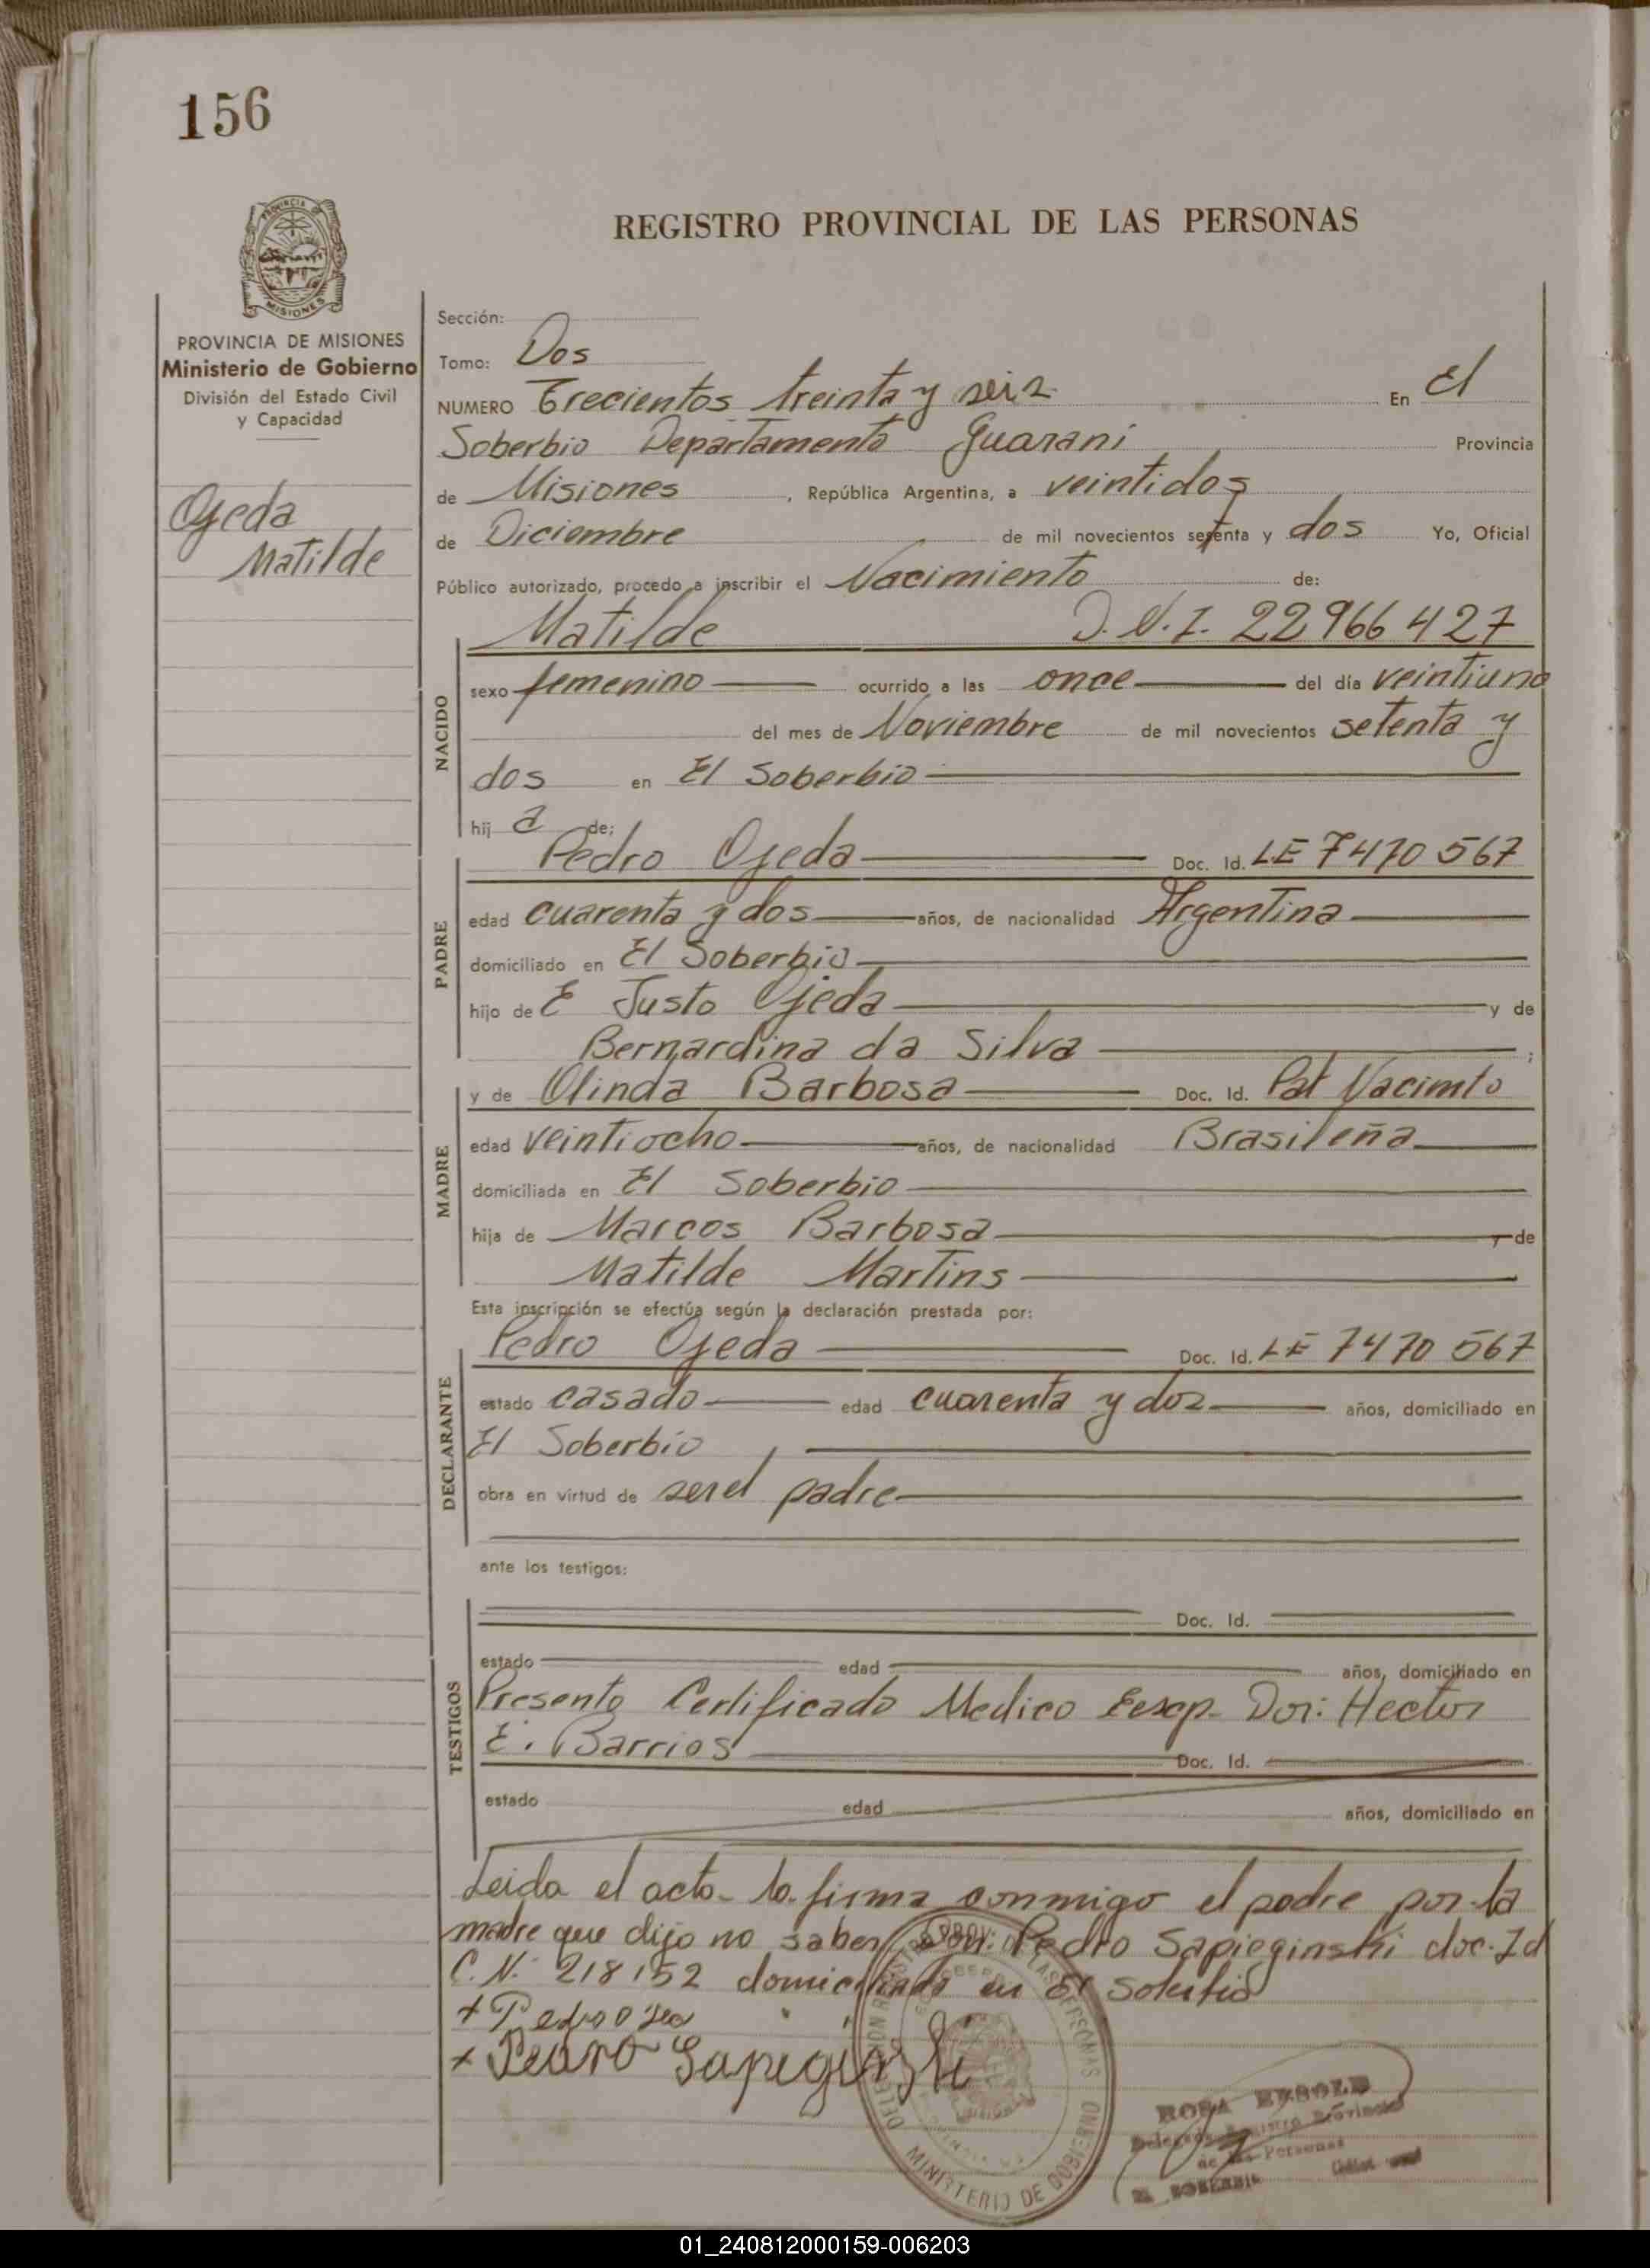 156
PROVINCIA DE MISIONES
Ministerio de Gobierno
División del Estado Civil
y Capacidad
Ojeda
Matilde
REGISTRO PROVINCIAL DE LAS PERSONAS
Sección:
Tomo: Dos
NUMERO Trecientos treinta y seis En El
Soberbio Departamento Guarani Provincia
de Misiones, República Argentina, a veintidos
de Diciembre de mil novecientos setenta y dos Yo, Oficial
Público autorizado, procedo a inscribir el Nacimiento de:
Matilde D.N.I. 22966427
NACIDO
sexo femenino ocurrido a las once del día veintiuno
del mes de Noviembre de mil novecientos setenta y
dos en El Soberbio
hij a de;
Pedro Ojeda Doc. Id. LE 7470567
PADRE
edad cuarenta y dos años, de nacionalidad Argentina
domiciliado en El Soberbio
hijo de E Justo Ojeda y de
Bernardina da Silva ;
y de Olinda Barbosa Doc. Id. Pat Nacimto
MADRE
edad veintiocho años, de nacionalidad Brasileña
domiciliada en El Soberbio
hija de Marcos Barbosa y de
Matilde Martins
Esta inscripción se efectúa según la declaración prestada por:
Pedro Ojeda Doc. Id. LE 7470567
DECLARANTE
estado casado edad cuarenta y dos años, domiciliado en
El Soberbio,
obra en virtud de ser el padre
ante los testigos:
Doc. Id.
TESTIGOS
estado edad años, domiciliado en
Presento Certificado Medico Dor: Hector
E. Barrios Doc. Id.
estado edad años, domiciliado en
Leida el acta la firma conmigo el padre por la
madre que dijo no saber Pedro Sapieginski doc. Id
C.N. 218152 domiciliado en El Soberbio
+ Pedro
+ Pedro Sapieginski
MINISTERIO DE GOBIERNO
ROSA
Registro Provincial
de las Personas
EL SOBERBIO
01_240812000159-006203